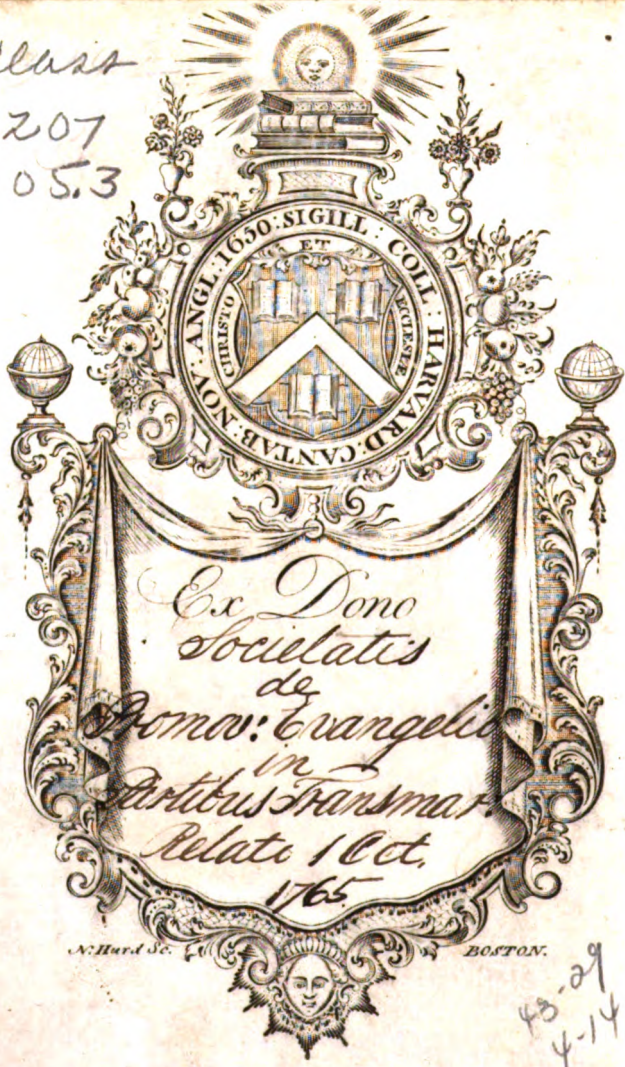 Class
207
05.3
SIGILL : COLL : HARVARD : CANTAB : NOV : ANGL : 1650 :
CHRISTO ET ECCLESIÆ
Ex Dono
Societatis
de
Promov: Evangelio
in
Partibus Transmar.
Relato 1 Oct.
1765
N. Hurd Sc. BOSTON.
43-29
4-14